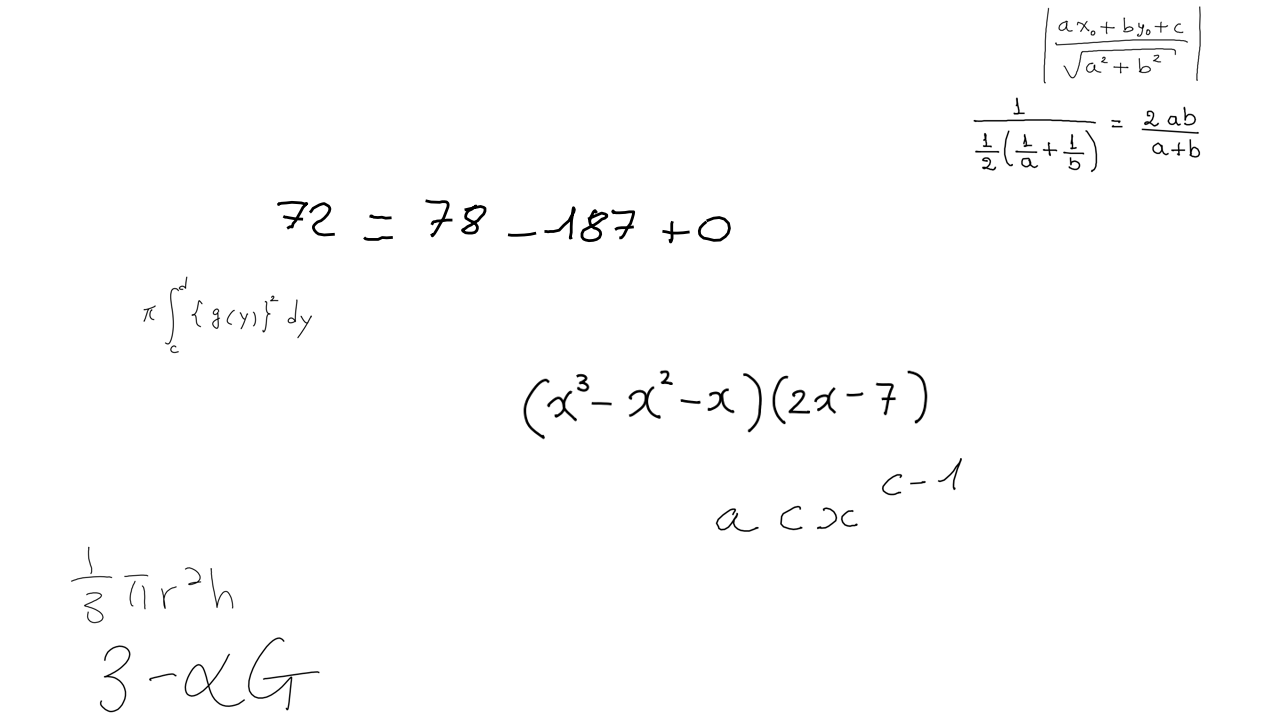 |\frac{ax_0+by_0+c}{\sqrt{a^2+b^2}}|
\frac{1}{\frac{1}{2}(\frac{1}{a}+\frac{1}{b})}=\frac{2ab}{a+b}
72=78-187+0
\pi\int_c^d\{g(y)\}^2dy
(x^3-x^2-x)(2x-7)
acx^{c-1}
\frac{1}{3}\pi r^2h
3-\alpha G